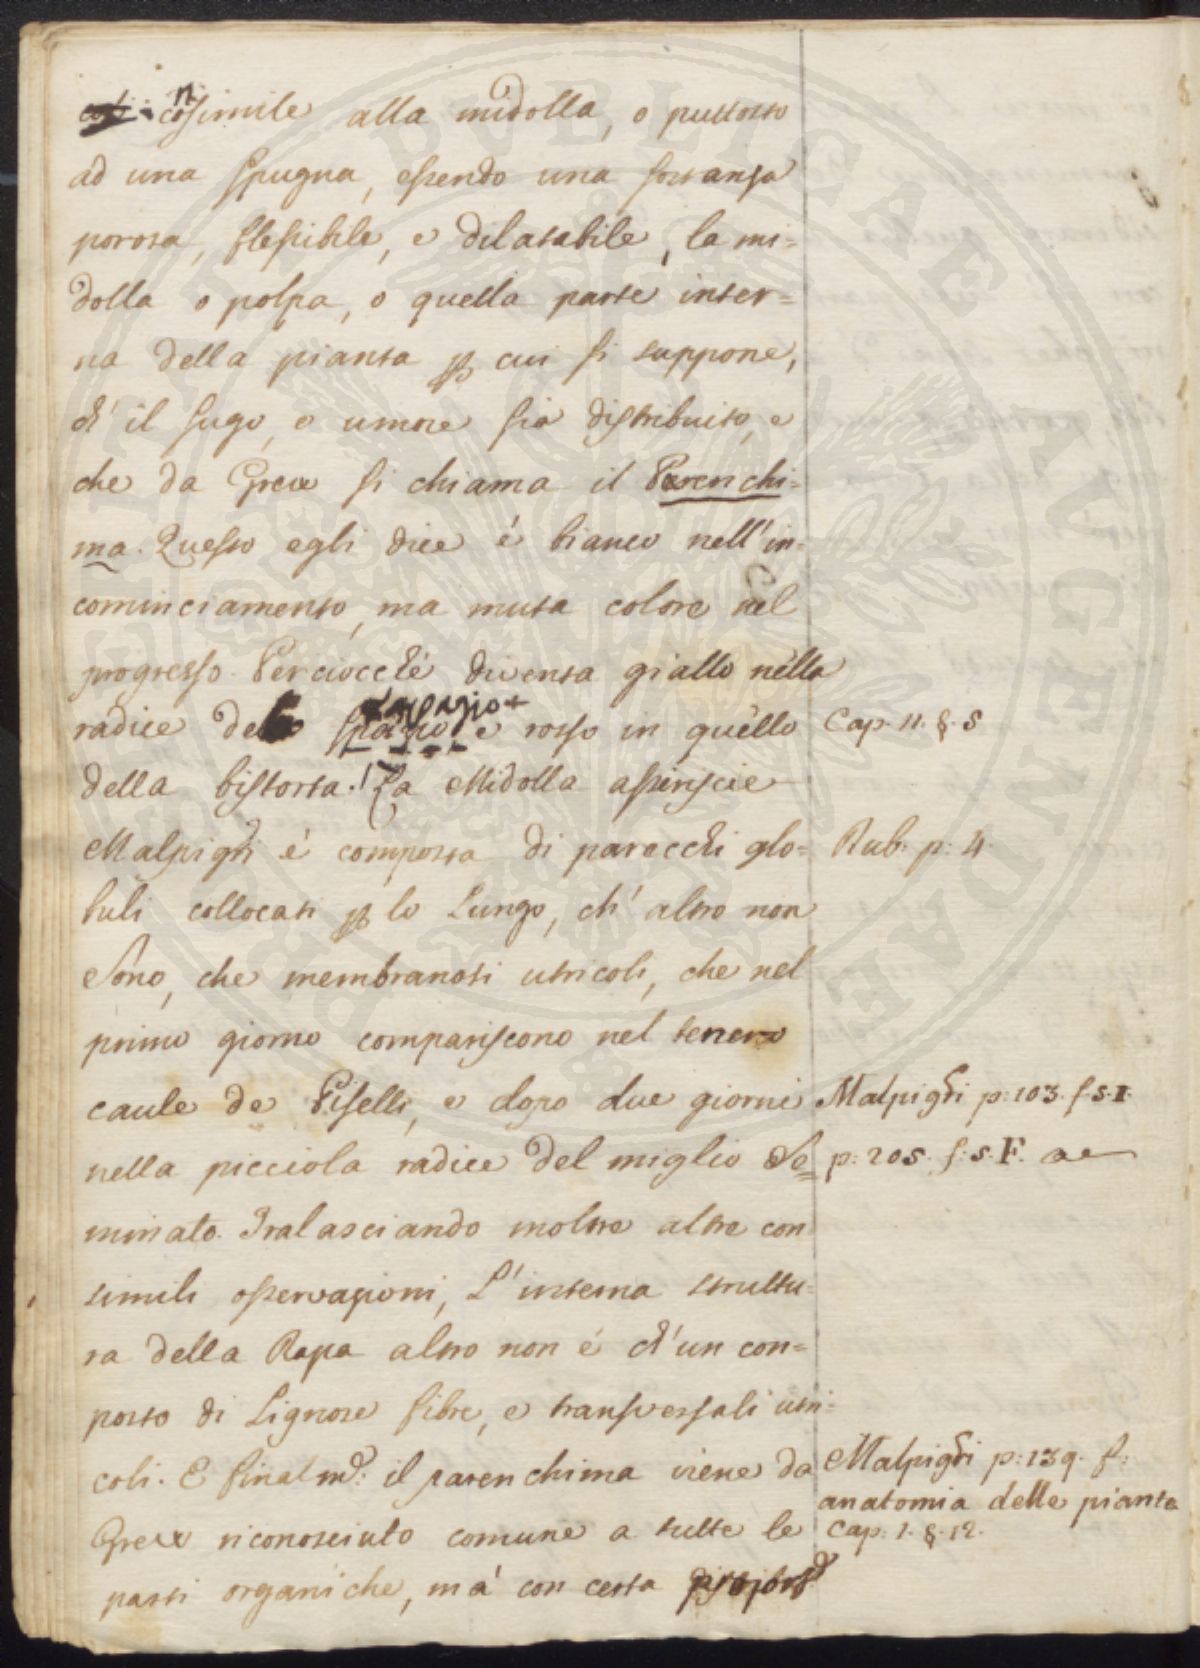 consimile alla midolla, o puttosto
ad una spugna, essendo una sostanza
porosa, flessibile, e dilatabile, la mi=
dolla o polpa, o quella parte inter=
na della pianta p cui si suppone,
ch' il sugo, o umore sia distribuito, e
che da Grew si chiama il Parenchi=
ma. Questo egli dice é bianco nell' in=
cominciamento, ma muta colore nel
progresso. Perciocché diventa giallo nella
radice dello e rosso in quello
Cap. 11. §. 5
della bistorta. La Midolla asserisce
Malpighi é composta di parecchi glo=
Rub. p. 4.
buli collocati p lo Lungo, ch' altro non
Sono, che membranosi utricoli, che nel
primo giorno compariscono nel tenero
caule de Piselli, e dopo due giorni
Malpighi p: 103. f. s. I.
nella picciola radice del miglio Se=
p: 205. f: s. F. ae
minato. Tralasciando inoltre altre con
simili osservazioni, L' interna struttu=
ra della Rapa altro non é ch' un con=
posto di Lignose fibre, e transversali utri=
coli. E finalmte: il parenchima viene da
Malpighi p: 139. f:
anatomia delle piante
Grew riconosciuto comune a tutte le
Cap: 1. §. 12.
parti organiche, má con certa